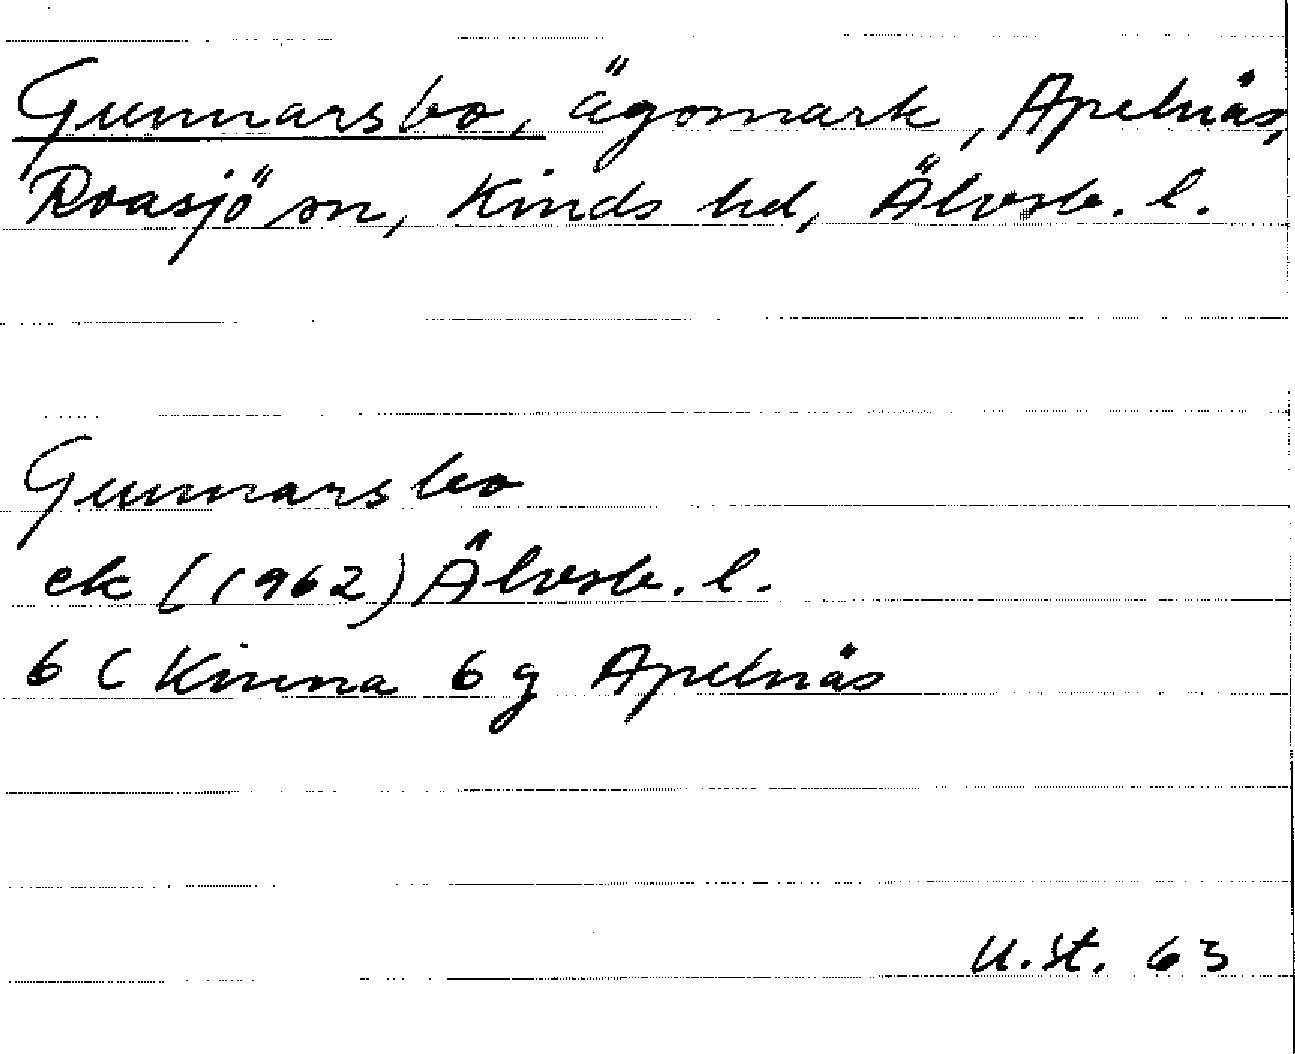 Gunnarsbo, ägomark, Apelnås,
Roasjö sn, Kinds hd, Älvsb. l.
Gunnarsbo
ek (1962) Älvsb. l.
6 C Kinna 6 g Apelnås
U. St. 63